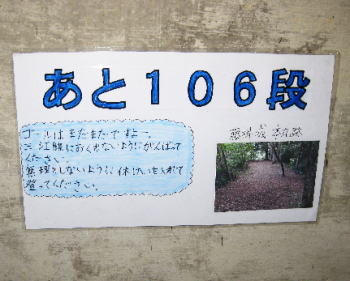 あと106段
ゴールはまだまだですよー。
三江線におくれないようにがんばって
ください。
無理をしないように休けいを入れて
登ってください。